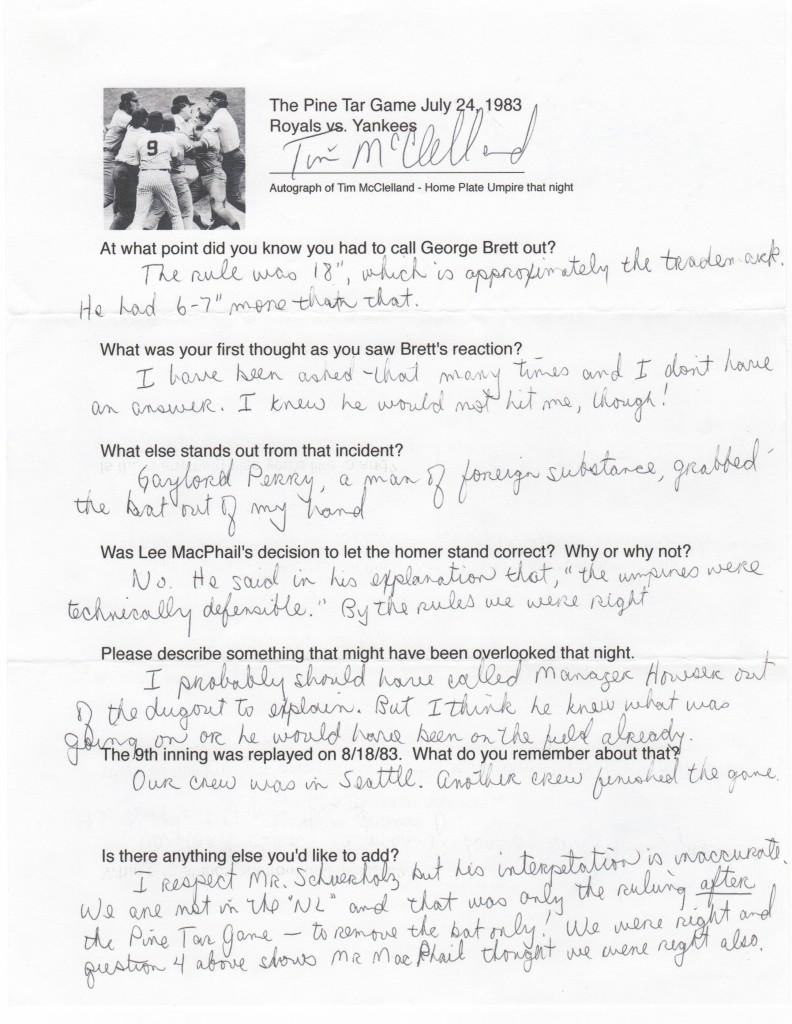 The Pine Tar Game July 24, 1983
Royals vs. Yankees
Tim McClelland
Autograph of Tim McClelland - Home Plate Umpire that night
9
At what point did you know you had to call George Brett out?
The rule was 18", which is approximately the trademark.
He had 6-7" more than that.
What was your first thought as you saw Brett's reaction?
I have been asked that many times and I don't have
an answer. I knew he would not hit me, though!
What else stands out from that incident?
Gaylord Perry, a man of foreign substance, grabbed
the bat out of my hand
Was Lee MacPhail's decision to let the homer stand correct? Why or why not?
No. He said in his explanation that, "the umpires were
technically defensible." By the rules we were right
Please describe something that might have been overlooked that night.
I probably should have called Manager Howser out
of the dugout to explain. But I think he knew what was
going on or he would have been on the field already.
The 9th inning was replayed on 8/18/83. What do you remember about that?
Our crew was in Seattle. Another crew finished the game.
Is there anything else you'd like to add?
I respect Mr. Schuerholz but his interpetation is inaccurate.
We are not in the "NL" and that was only the ruling after
the Pine Tar Game – to remove the bat only! We were right and
question 4 above shows Mr MacPhail thought we were right also.